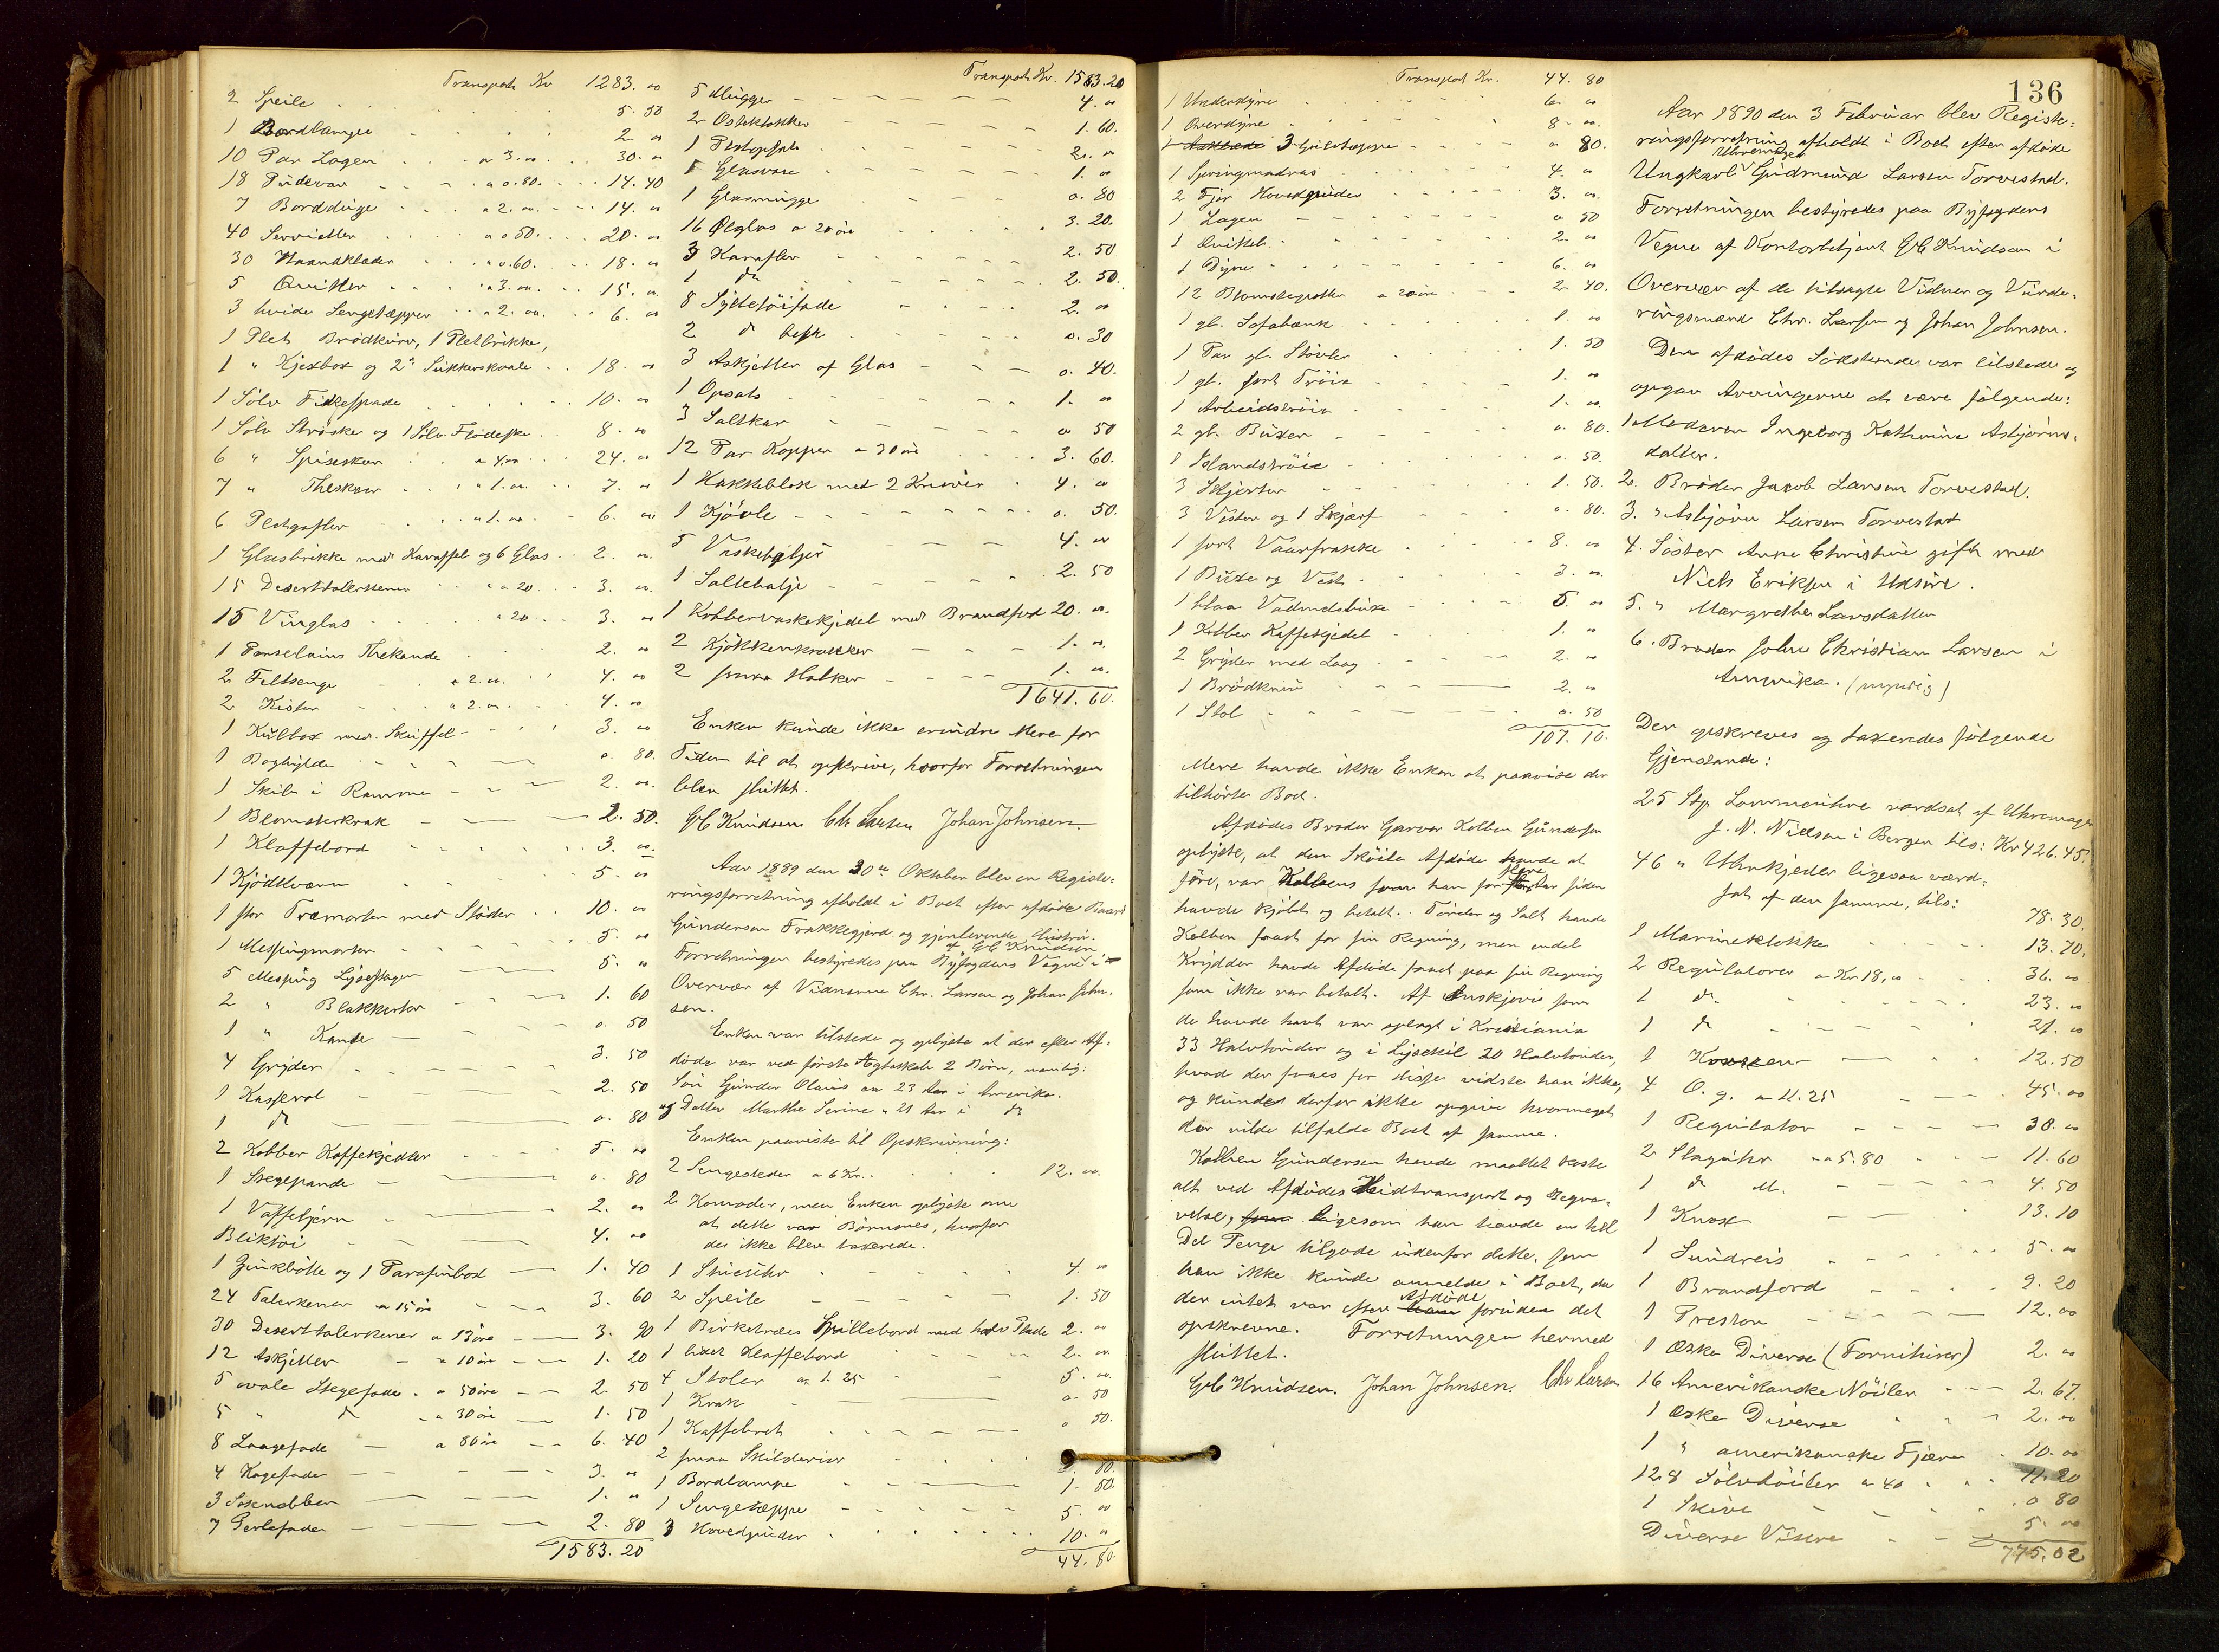 Transport Kr 1283. 00
2 Speile 5. 50
1 Bordlampe 2. 00
10 Par Lagen a 3. 00 30. 00
18 Pudevar a 0. 80. 14. 40
7 Bordduge a 2. 00 14. 00
40 Servietter a 0 50. 20. 00
30 Haandklæder a 0. 60. 18. 00
5 Qvitler a 3. 00. 15. 00
3 hvide Sengetæpper a 2. 00. 6. 00
1 Plet Brödkurv, 1 Pletbrikke,
1 " Kjexbox og 2 " Sukkerskaale 18. 00
1 Sölv Fiskespade 10. 00
1 Sölv Ströske og 1 Sölv Flödeske 8. 00
6 " Spiseskeer a 4.00 24. 00
7 " Theskeer a 1. 00. 7. 00
6 Pletgafler a 1. 00. 6. 00
1 Glasbrikke med Karaffel og 6 Glas 2. 00.
15 Deserttalerkener a 20 3. 00.
15 Vinglas a 20 3. 00
1 Porselains Thekande 2. 00
2 Feltsenge a 2. 00. 4. 00
2 Kister a 2. 00. 4. 00
1 Kulbox med Skuffel 3. 00
1 Boghylde 0. 80.
1 Skib i Ramme 2. 00.
1 Blomsterkrak 2. 50.
1 Klaffebord 3. 00.
1 Kjödkværn 5. 00
1 stor Træmorter med Stöder 10. 00
1 Messingmorter 5. 00
5 Messing Lysestager 5. 00
2 " Blakkerter 1. 60
1 " Kande 0. 50
4 Gryder 3. 50
1 Kasserol 2. 50
1 do 0. 80
2 Kobber Kaffekjedler 5. 00
1 Stegepande 0. 80
1 Vaffeljern 2. 00
Bliktöi 4. 00
1 Zinkbötte og 1 Parafinbox 1. 40
24 Talerkener a 15 öre 3. 60
30 Deserttalerkener a 13 öre 3. 90
12 Askjetter a 10 öre 1. 20
5 ovale Stegefade a 50 öre 2. 50
5 " do a 30 öre 1. 50
8 Laagefade a 80 öre 6. 40
4 Kagefade 3. 00
3 Sosenebber 1. 00
7 Perlefade 2. 80
1583. 20
Transport Kr. 1583. 20
5 Mugger 4. 00
2 Osteklokker 1. 60.
1 Pletopsats 2. 00
1 Glasvase 1. 00
1 Glasmugge 0. 80
16 Ölglas a 20 öre 3. 20.
3 Karafler 2. 50
1 do 2. 50.
8 Syltetöifade 2. 00
2 do besk 0. 30
3 Askjetter af Glas 0. 40.
1 Opsats 1. 00
3 Saltkar 0 50
12 Par Kopper a 30 öre 3. 60.
1 Hakkeblok med 2 Knive 4. 00
1 Kjövle 0. 50.
5 Vaskebaljer 4. 00
1 Saltebalje 2. 50
1 Kobbervaskekjedel med Brandfod 20. 00.
2 Kjökkenkrakker 1. 00.
2 smaa Holker 1. 00.
1641. 60.
Enken kunde ikke erindre Mere for
Tiden til at opskrive, hvorfor Forretningen
blev sluttet.
G C Knudsen Chr Larsen Johan Johnsen.
Aar 1889 den 30te Oktober blev en Registe-
ringsforretning afholdt i Boet efter afdöde Baard
Gundersen Frakkegjerd og gjenlevende Hustru.
af G C Knudsen
Forretningen bestyredes paa Byfogdens Vegne i
Overvær af Vidnerne Chr. Larsen og Johan John-
sen.
Enken var tilstede og oplyste at der efter Af-
döde var ved förste Ægteskab 2 Börn, nemlig:
Sön Gunder Olaus ca 23 Aar i Amerika.
og Datter Marthe Serine " 21 Aar i do
Enken paaviste til Opskrivning:
2 Sengesteder a 6 Kr. 12. 00.
2 Komoder, men Enken oplyste om
at dette var Börnenes, hvorfor
des ikke blev taxerede.
1 Stueuhr 4. 00
2 Speile 1. 50
1 Birketræes Spillebord med halv Plade 2. 00
1 lidet Klaffebord 2. 00
4 Stoler a 1. 25 5. 00.
1 Krak 0. 50
1 Kaffebret 0 50.
2 smaa Skilderier 0. 80.
1 Bordlampe 1. 50.
1 Sengetæppe 5. 00
3 Hovedpuder 10. 00
44. 80.
136
Transport Kr. 44. 80
1 Underdyne 6. 00
1 Overdyne 8. 00.
3 Gulvtæppe 0 80.
1 Springmadras 4. 00
2 Fjær Hovedpuder 3. 00.
1 Lagen 0 50
1 Kvittel 2. 00
1 Dyne 6. 00
12 Blomsterpotter a 20 öre 2 40.
1 gl. Sofabænk 1. 00
1 Par gl. Stövler 1. 50
1 gl. sort Tröie 1. 00
1 Arbeidströie 1. 00
2 gl. Buxer 0. 80.
1 Islandströie 0. 50.
3 Skjorter 1. 50.
3 Vester og 1 Skjærf 0. 80.
1 sort Vaarfrakke 8. 00
1 Buxe og Vest 3. 00.
1 blaa Vadmelsbuxe 5. 00
1 Kobber Kaffekjedel 1. 00
2 Gryder med Laag 2. 00
1 Brödkniv 2. 00
1 Stol 0. 50
107. 10.
Mere havde ikke Enken at paavise der
tilhörte Boet.
Afdödes Broder Garver Kolben Gundersen
oplyste, at den Sköite Afdöde havde at
före, var Kolbens som han for flere Aar siden
havde kjöbt og betalt. Tönder og Salt havde
Kolben faaet for sin Regning, men endel
Krydder havde Afdöde faaet paa sin Regning
som ikke var betalt. Af Anskjovis som
de havde havt var oplagt i Kristiania
33 Halvtönder og i Lysekil 20 Halvtönder,
hvad der faaes for disse vidste han ikke,
og kunde derfor ikke opgive hvormeget
der vilde tilfalde Boet af samme.
Kolben Gundersen havde maattet koste
alt ved Afdödes Hidtransport og Begra-
velse, ligesom han havde en hel
Del Penge tilgode udenfor dette, som
han ikke kunde anmelde i Boet, da
der intet var efter Afdöde foruden det
opskrevne. Forretningen hermed
sluttet.
G C Knudsen. Johan Johnsen. Chr Larsen
Aar 1890 den 3 Februar blev Registe-
ringsforretning afholdt i Boet efter afdöde
Uhrmager
Ungkarl Gudmund Larsen Torvestad.
Forretningen bestyredes paa Byfogdens
Vegne af Kontorbetjent G C Knudsen i
Overvær af de tilsagte Vidner og Vurde-
ringsmænd Chr. Larsen og Johan Johnsen.
Den afdödes Södskende var tilstede og
opgav Arvingerne at være fölgende:
1 Moderen Ingeborg Kathrine Asbjörns-
datter.
2. Broder Jacob Larsen Torvestad.
3. " Asbjörn Larsen Torvestad
4. Söster Anne Christine gift med
Niels Eriksen i Utsire.
5. " Margrethe Larsdatter
6. Broder John Christian Larsen i
Amerika. (myndig)
Der opskreves og taxeredes fölgende
Gjenstande:
25 Stp Lommeuhre værdsat af Uhrmager
J. N. Nielsen i Bergen tils: Kr 426. 45.
46 " Uhrkjeder ligesaa værd-
sat af den samme, tils: 78. 30.
1 Marineklokke 13. 70.
2 Regulatorer a Kr 18,00 36. 00
1 do 23. 00
1 do 21. 00
1 12. 50
4 O. g. a 11. 25 45. 00
1 Regulator 30. 00
2 Slaguhr a 5. 80 11. 60
1 do M. 4. 50
1 Knox 13. 10
1 Sundreis 5. 00
1 Brandford 9. 20
1 Preston 12. 00
1 Æske Diverse (Fornithurer) 2. 00
16 Amerikanske Nöiler 2. 67.
1 Æske Diverse 2. 00
1 " amerikanske Fjære 10. 00
128 a 40 11. 20
1 Skive 0 80
Diverse Viskere 5. 00
775. 02